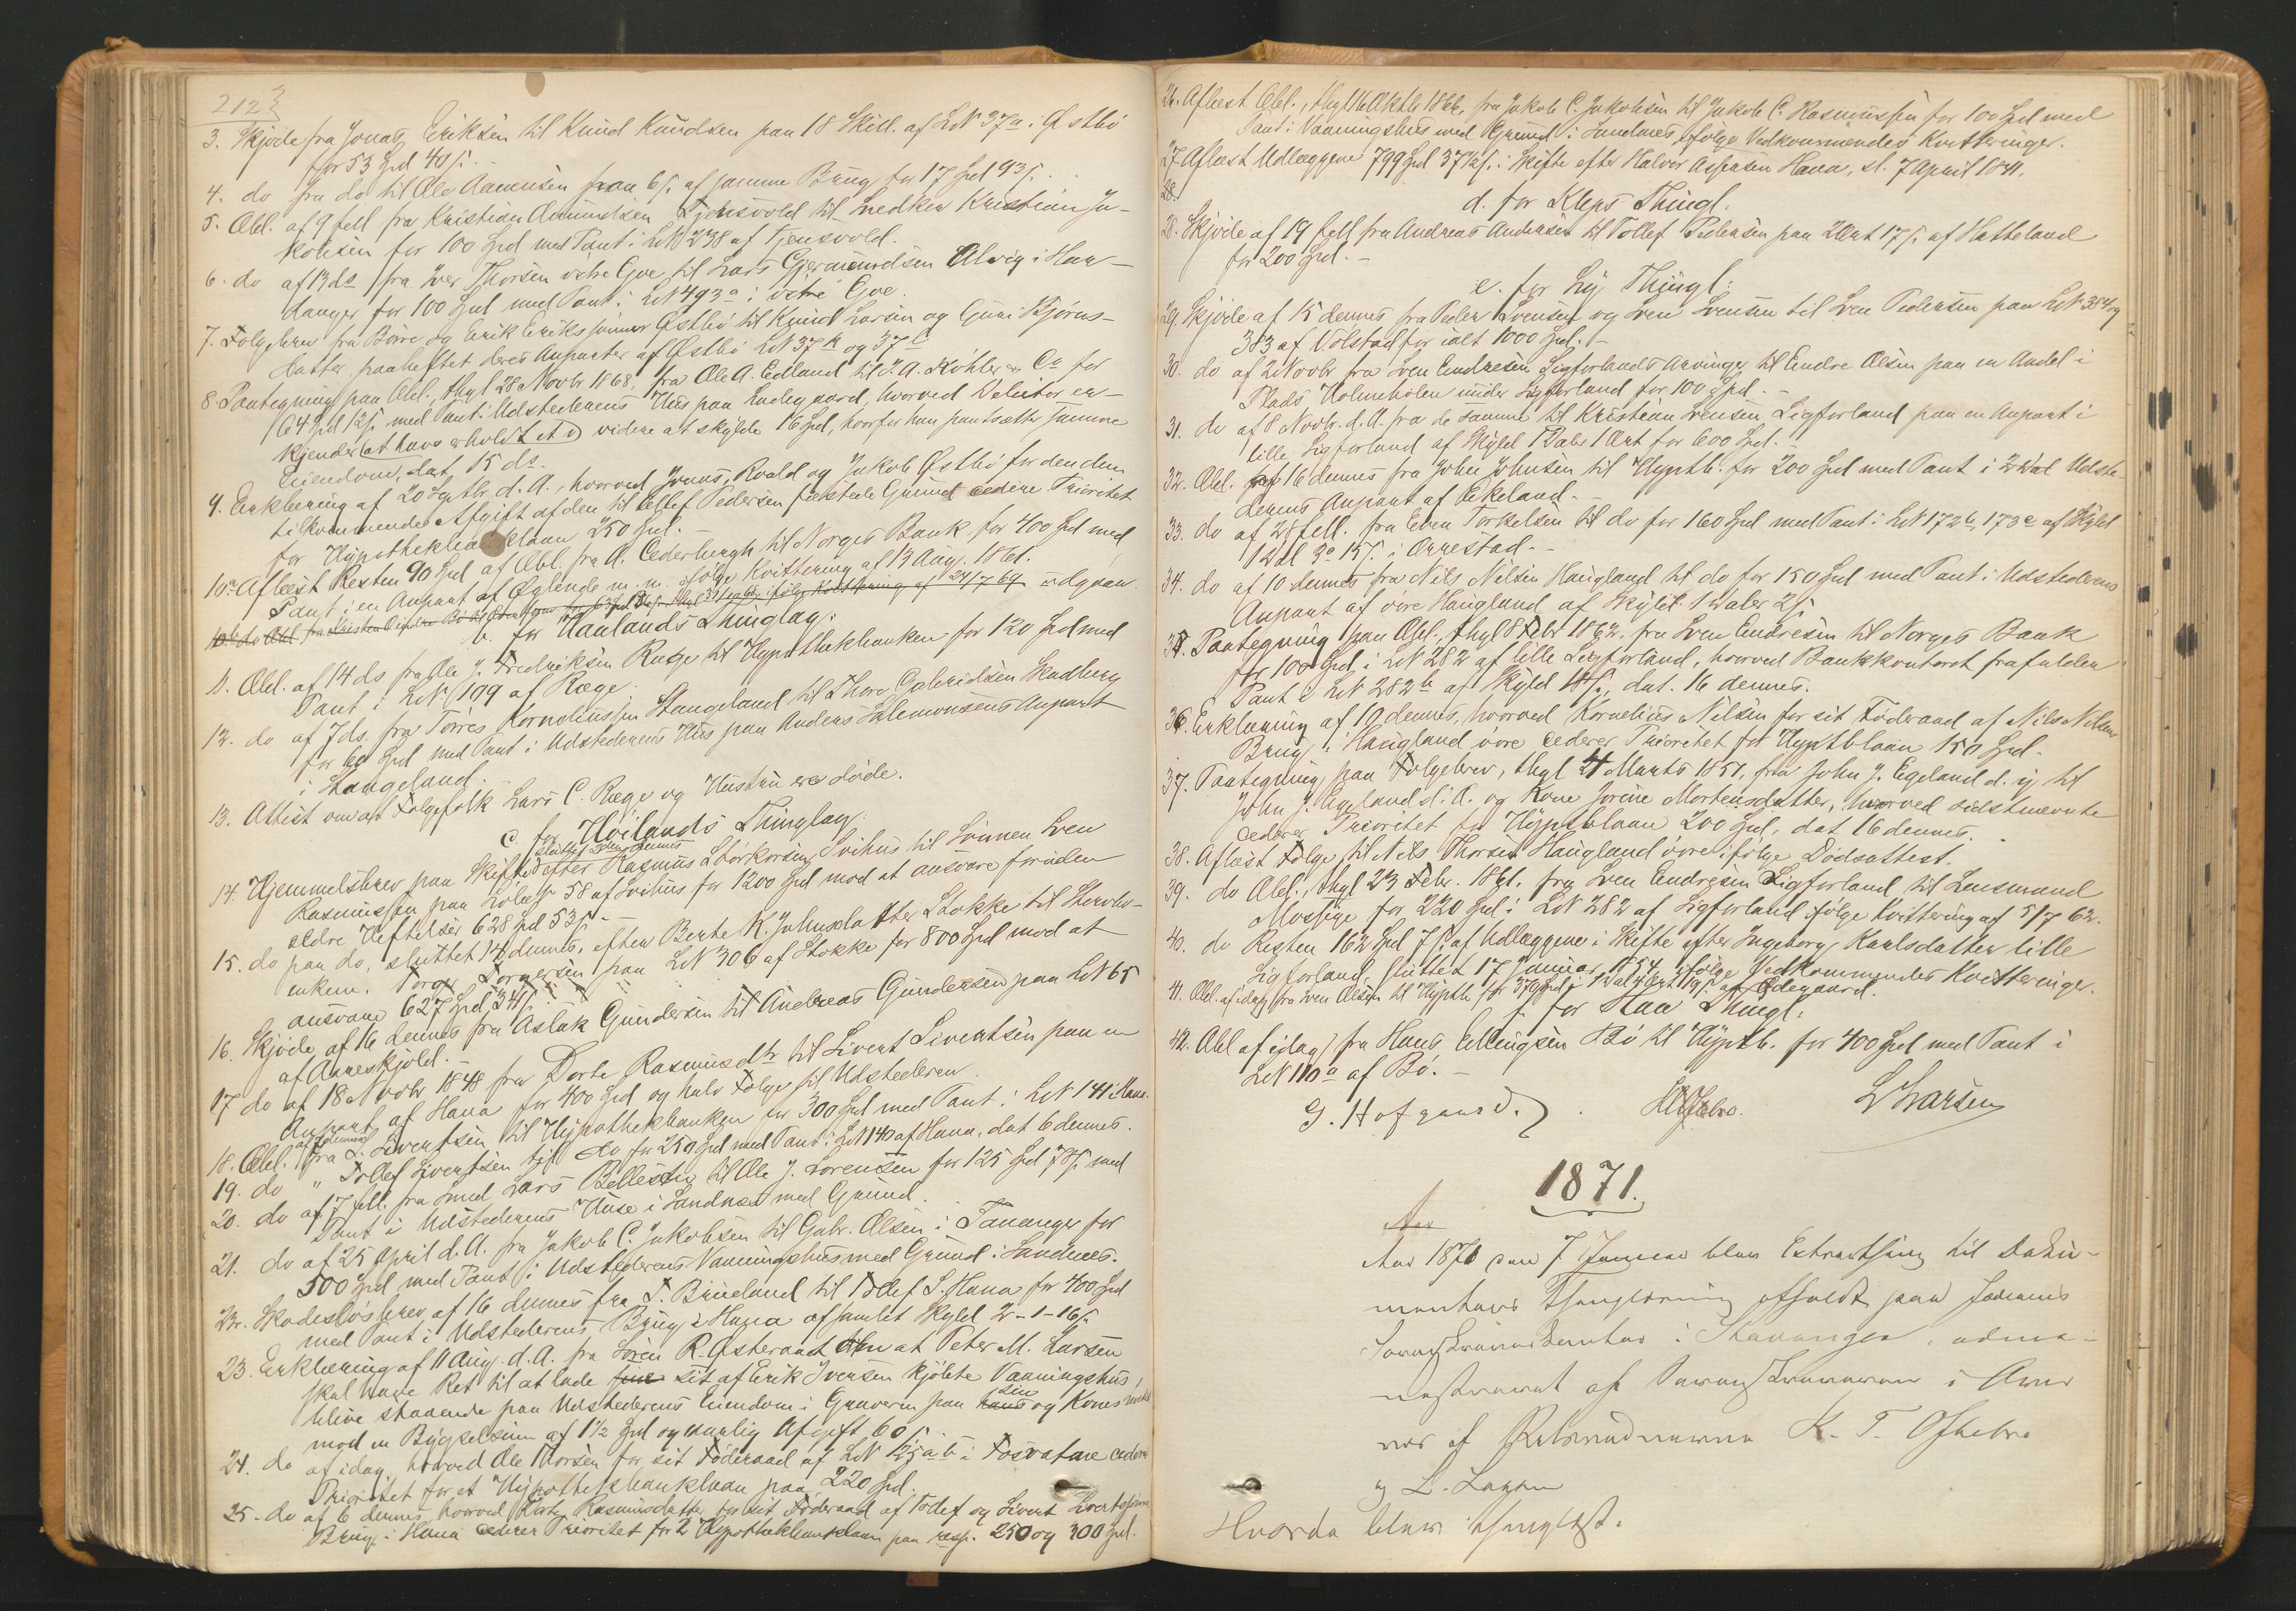 212
3. Skjöde fra Jonas Eriksen til Knud Knudsen paa 18 Skill. af LN 37a i Østbö
for 53 Spd 40 s.
4. do fra do til Ole Aamunsen paa 6 s. af samme Brug for 17 Spd 93 s.
5. Obl. af 9 fell fra Kristian Aamundsen Tjensvold til Snedker Kristian Ja-
kobsen for 100 Spd med Pant i LN 238 af Tjensvold.
6. do af 13 ds fra Iver Thorsen östre Goe til Lars Gjermundsen Alvig i Har-
danger for 100 Spd med Pant i LN 493a i östre Goe.
7. Folgebrev fra Börre og Erik Erikssönner Østbö til Knud Larsen og Guri Björns-
datter paaheftet deres Anparter af Østbö LN 37b og 37c
8. Paategning paa Obl., thgl 28 Novbr 1868, fra Ole A. Edland til J. A. Köhler & Co for
164 Spd 12 s. med Pant i Udstederens Hus paa Ladegaard, hvorved Debitor er-
kjender at have erholdt et videre at skylde 16 Spd, hvorfor han pantsætter samme
Eiendom, dat. 15 ds.
9. Erklæring af 20 Septbr d. A., hvorved Jonas, Roald og Jakob Østbö for den dem
tilkommende Afgift af den til Tollef Pedersen fæstede Grund cedere Prioritet
for Hypothekbanklaan 250 Spd.
10a Aflæst Resten 90 Spd af Obl. fra A. Cederbergh til Norges Bank for 400 Spd med
Pant i en Anpart af Øglende m. m. ifölge Kvittering af 13 Aug. 1861.
b. for Haalands Thinglag:
11. Obl. af 14 ds fra Ole J. Fredriksen Ræge til Hypothekbanken for 120 Spd med
Pant i LN 199 af Ræge.
12. do af 7 ds. fra Torres Korneliussen Stangeland til Thore Gabrielsen Skadberg
for 60 Spd med Pant i Udstederens Hus paa Anders Salemonsens Anpart
i Stangeland.
13. Attest om at Folgefolk Lars C. Ræge og Hustru ere döde.
c. for Höilands Thinglag:
14. Hjemmelsbrev paa Skifte sluttet 20 dennes efter Rasmus Storkersen Svihus til Sönnen Sven
Rasmussen paa Löbe N 58 af Svihus for 1200 Spd mod at ansvare foruden
ældre Heftelser 628 Spd 53 s. -
15. do paa do. sluttet 14 dennes, efter Berte K. Johnsdatter Stokke til Stervbo-
enken. Torger Torgersen paa LN 306 af Stokke for 800 Spd mod at
ansvare 627 Spd 34 s.
16. Skjöde af 16 dennes fra Aslak Gundersen til Andreas Gundersen paa LN 65
af Aareskjold. -
17 do af 18 Novbr 1848 fra Dorte Rasmusdtr til Sivert Sivertsen paa en
Anpart af Hana for 400 Spd og halv Folge til Udstederen.
18. Obl. af 6 dennes fra S. Sivertsen til Hypothekbanken for 300 Spd med Pant i LN 141 i Hana.
19. do " Tollef Sivertsen til do for 250 Spd med Pant i LN 140 af Hana, dat 6 dennes.
20. do af 7 fell. fra Smed Lars Bellesen til Ole J. Lorentsen for 125 Spd 78 s. med
Pant i Udstederens Huse i Sandnes med Grund.
21. do af 25 April d. A. fra Jakob C. Jakobsen til Gabr. Olsen i Tananger for
500 Spd med Pant i Udstederens Vaaningshus med Grund i Sandnes.
22. Skadeslösbrev af 16 dennes fra T. Brueland til Tollef S. Hana for 400 Spd
med Pant i Udstederens Brug i Hana af samlet Skyld 2 - 1 - 16 s.
23. Erklæring af 11 Aug. d. A. fra Sören R. Østeraadt om at Peter M. Larsen
skal have Ret til at lade sit af Erik Iversen kjöbte Vaaningshus,
blive staaende paa Udstederens Eiendom i Gravaren paa sin og Kones
mod en Bygselsum af 1½ Spd og aarlig Afgift 60 s.
24. do af idag, hvorved Ole Thorsen for sit Föderaad af LN 125 a b i Fosvatne cederer
Prioritet for et Hypothekbanklaan paa 220 Spd.
25. do af 6 dennes hvorved Dorte Rasmusdatter for sit Föderaad af Tollef og Sivert Sivertssönners
Brug i Hana cederer Prioritet for 2 Hypothekbanklaan paa resp. 250 og 300 Spd.
26. Aflæst Obl., thgl 16 Oktbr 1866, fra Jakob C. Jakobsen til Jakob C. Rasmussen for 100 Spd med
Pant i Vaaningshus med Grund i Sandnes ifölge Vedkommendes Kvitteringer.
27 Aflæst Udlæggene 799 Spd 37½ s. i Skifte efter Halvor Aslaksen Hana, sl. 7 April 1841.
28.
d. for Kleps Thingl.
28. Skjöde af 19 fell fra Andreas Andersen til Tollef Pedersen paa 2 Ort 17 s. af Hatteland
for 200 Spd. -
e. for Ly Thingl:
29. Skjöde af 15 dennes fra Peder Svensen og Sven Svensen til Sven Pedersen paa LN 354 og
383 af Tölstad for ialt 1000 Spd. -
30. do af 2 Novbr fra Sven Endresen Ligforlands Arvinger til Endre Olsen paa en Andel i
Plads Holmehölen under Ligforland for 100 Spd. -
31. do af 8 Novbr. d. A. fra de samme til Kristian Svensen Ligforland paa en Anpart i
lille Ligforland af Skyld 1 Daler 1 Ort for 600 Spd. -
32. Obl. af 16 dennes fra John Johnsen til Hypthb. for 200 Spd med Pant i 2 Dal Udste-
derens Anpart af Eikeland. -
33. do af 28 fell. fra Even Torkelsen til do for 160 Spd med Pant i LN 172b, 173c af Skyld
1 Dal 3o 15 s. i Orrestad. -
34. do af 10 dennes fra Nils Nilsen Haugland til do for 150 Spd med Pant i Udstederens
Anpart af övre Haugland af Skyld 1 Daler 2 s.
35. Paategning paa Obl., thgl 8 Febr 1862. fra Sven Endresen til Norges Bank
for 100 Spd i LN 282 af lille Ligforland, hvorved Bankkontoret frafalder
Pant i LN 282b af Skyld 18 s., dat. 16 dennes.
36. Erklæring af 10 dennes, hvorved Kornelius Nilsen for sit Föderaad af Nils Nilsens
Brug i Haugland övre cederer Prioritet for Hyptblaan 150 Spd.
37. Paategning paa Folgebrev, thgl 4 Marts 1851, fra John J. Egeland d. y. til
John J. Egeland d. Æ. og Kone Jorine Mortensdatter, hvorved sidstnævnte
cederer Prioritet for Hyptblaan 200 Spd, dat 16 dennes.
38. Aflæst Folge til Nils Thorsen Haugland övre ifölge Dödsattest.
39. do Obl., thgl 23 Febr. 1861. fra Sven Endresen Ligforland til Lensmand
Mossige for 220 Spd i LN 282 af Ligforland ifölge Kvittering af 5/7 62.
40. do Resten 162 Spd 7 s. af Udlæggene i Skifte efter Ingeborg Karlsdatter lille
Ligforland, sluttet 17 Januar 1854 ifölge Vedkommendes Kvitteringer.
41. Obl. af idag fra Sven Olsen til Hypthb for 370 Spd i 1 Dal 4 Ort 19 s. af Ødegaard.
f. for Haa Thingl:
42. Obl af idag fra Hans Ellingsen Bö til Hypthb. for 400 Spd med Pant i
LN 110a af Bö. -
G. Hofgaard. L Larsen
1871.
Aar
Aar 1871 den 7 Januar blev Extrathing til Doku-
menters Thinglæsning afholdt paa Jæderens
Sorenskriverkontor i Stavanger, admi-
nistreret af Sorenskriveren i Over
vær af Retsvidnerne K. T. Oftebro
og L. Larsen
Hvorda blev thinglæst.